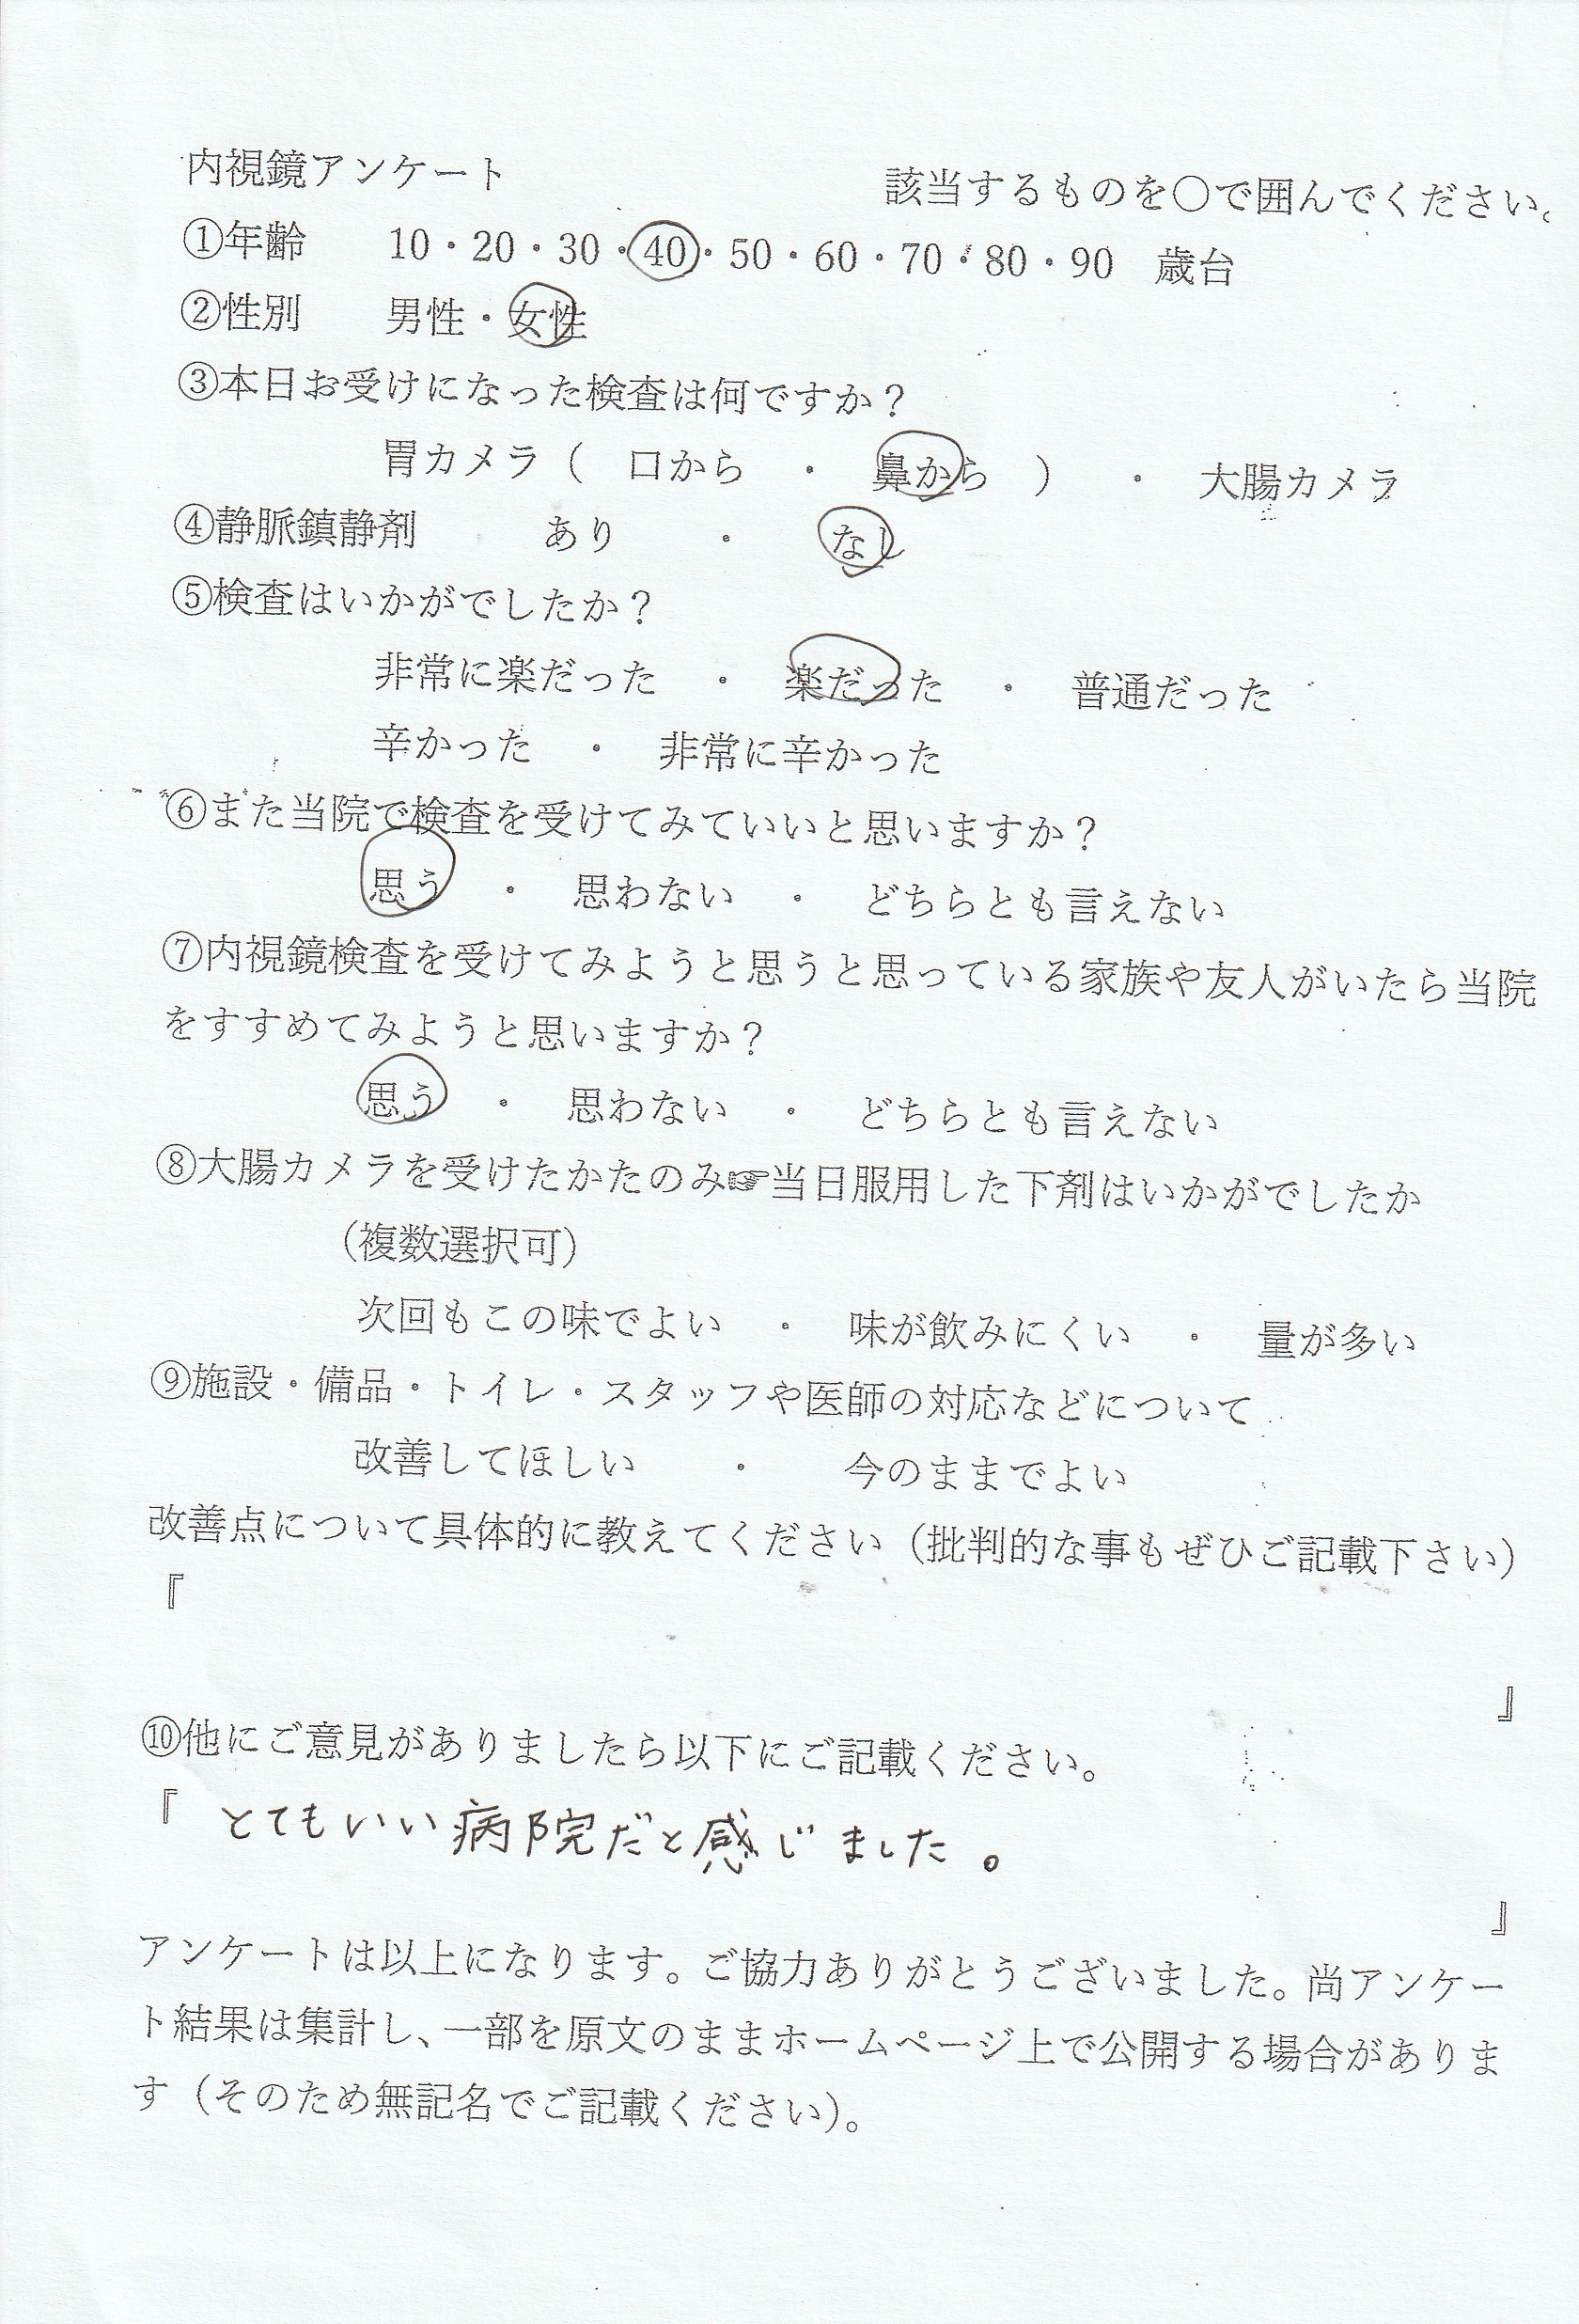 内視鏡アンケート　該当するものを〇で囲んでください。
①年齢　10・20・30・40・50・60・70・80・90　歳台
②性別　男性・女性
③本日お受けになった検査は何ですか？
胃カメラ（　口から　・　鼻から　）　・　大腸カメラ
④静脈鎮静剤　あり　・　なし
⑤検査はいかがでしたか？
非常に楽だった　・　楽だった　・　普通だった
辛かった　・　非常に辛かった
⑥また当院で検査を受けてみていいと思いますか？
思う　・　思わない　・　どちらとも言えない
⑦内視鏡検査を受けてみようと思うと思っている家族や友人がいたら当院
をすすめてみようと思いますか？
思う　・　思わない　・　どちらとも言えない
⑧大腸カメラを受けたかたのみ☞当日服用した下剤はいかがでしたか
（複数選択可）
次回もこの味でよい　・　味が飲みにくい　・　量が多い
⑨施設・備品・トイレ・スタッフや医師の対応などについて
改善してほしい　・　今のままでよい
改善点について具体的に教えてください（批判的な事もぜひご記載下さい）
『
』
⑩他にご意見がありましたら以下にご記載ください。
『　とてもいい病院だと感じました。
』
アンケートは以上になります。ご協力ありがとうございました。尚アンケー
ト結果は集計し、一部を原文のままホームページ上で公開する場合がありま
す（そのため無記名でご記載ください）。